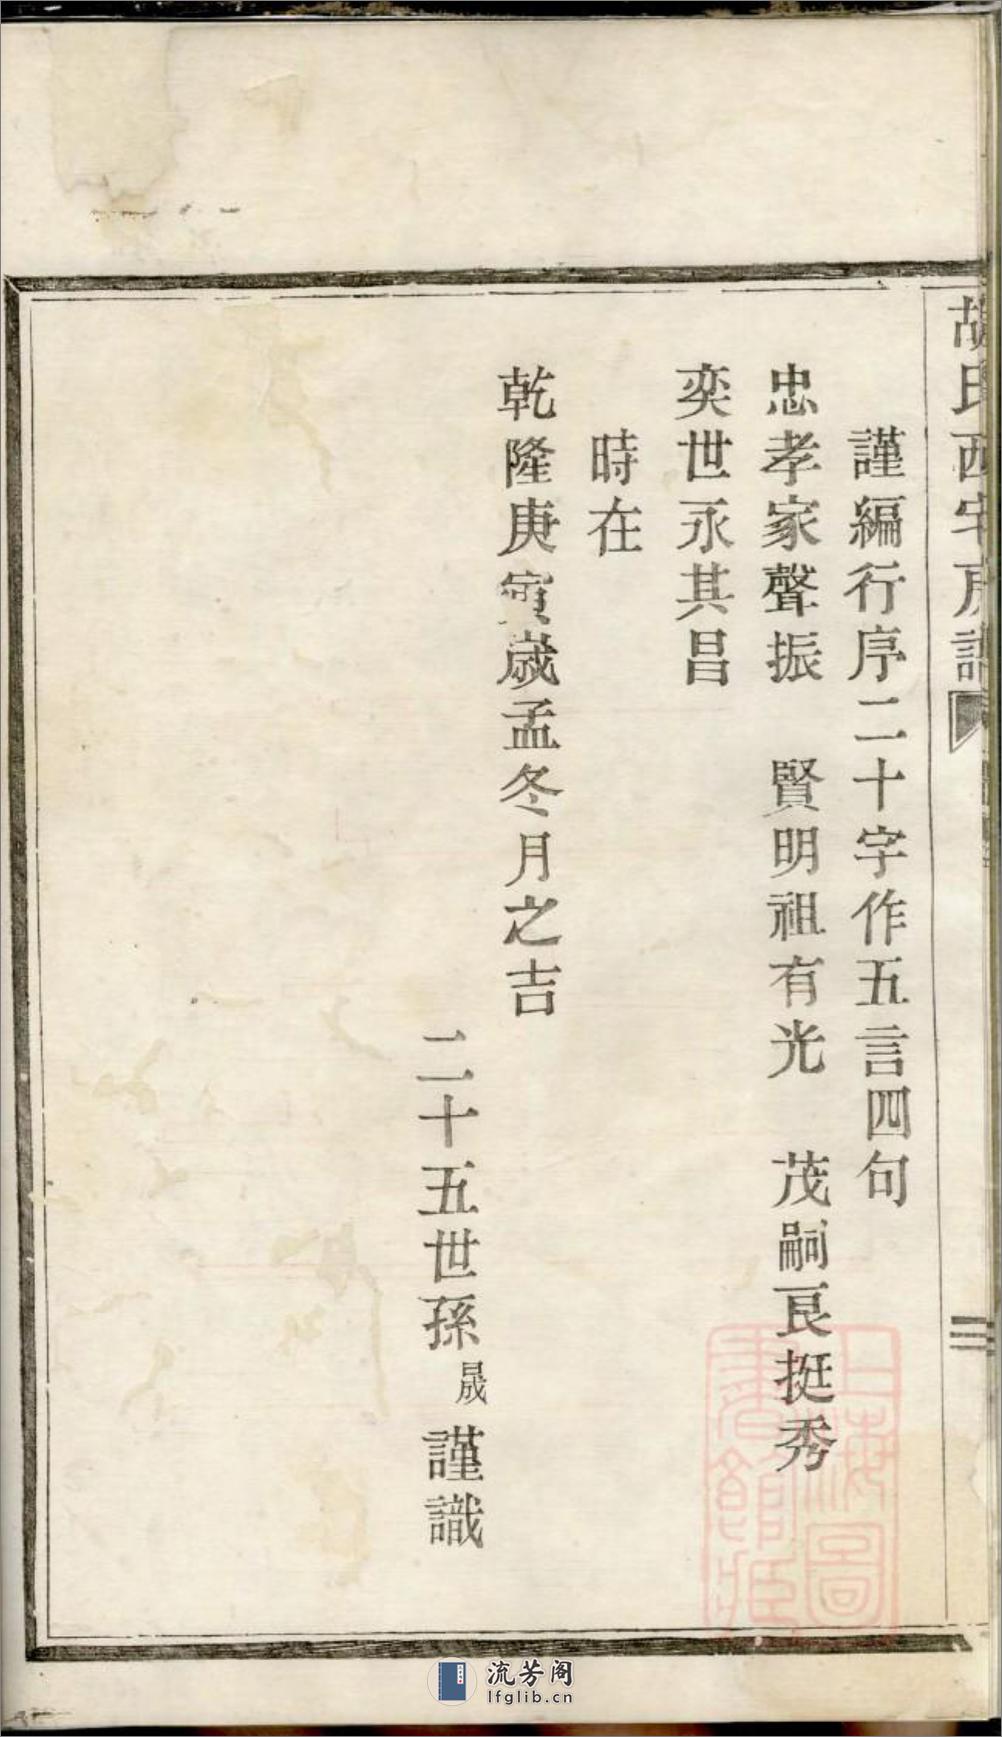 胡氏西宅房譜
謹編行序二十字作五言四句
忠孝家聲振　賢明祖有光　茂嗣良挺秀
奕世永其昌
時在
乾隆庚寅歲孟冬月之吉
二十五世孫晟謹識
上海圖書館藏
流芳阁
lfglib.cn